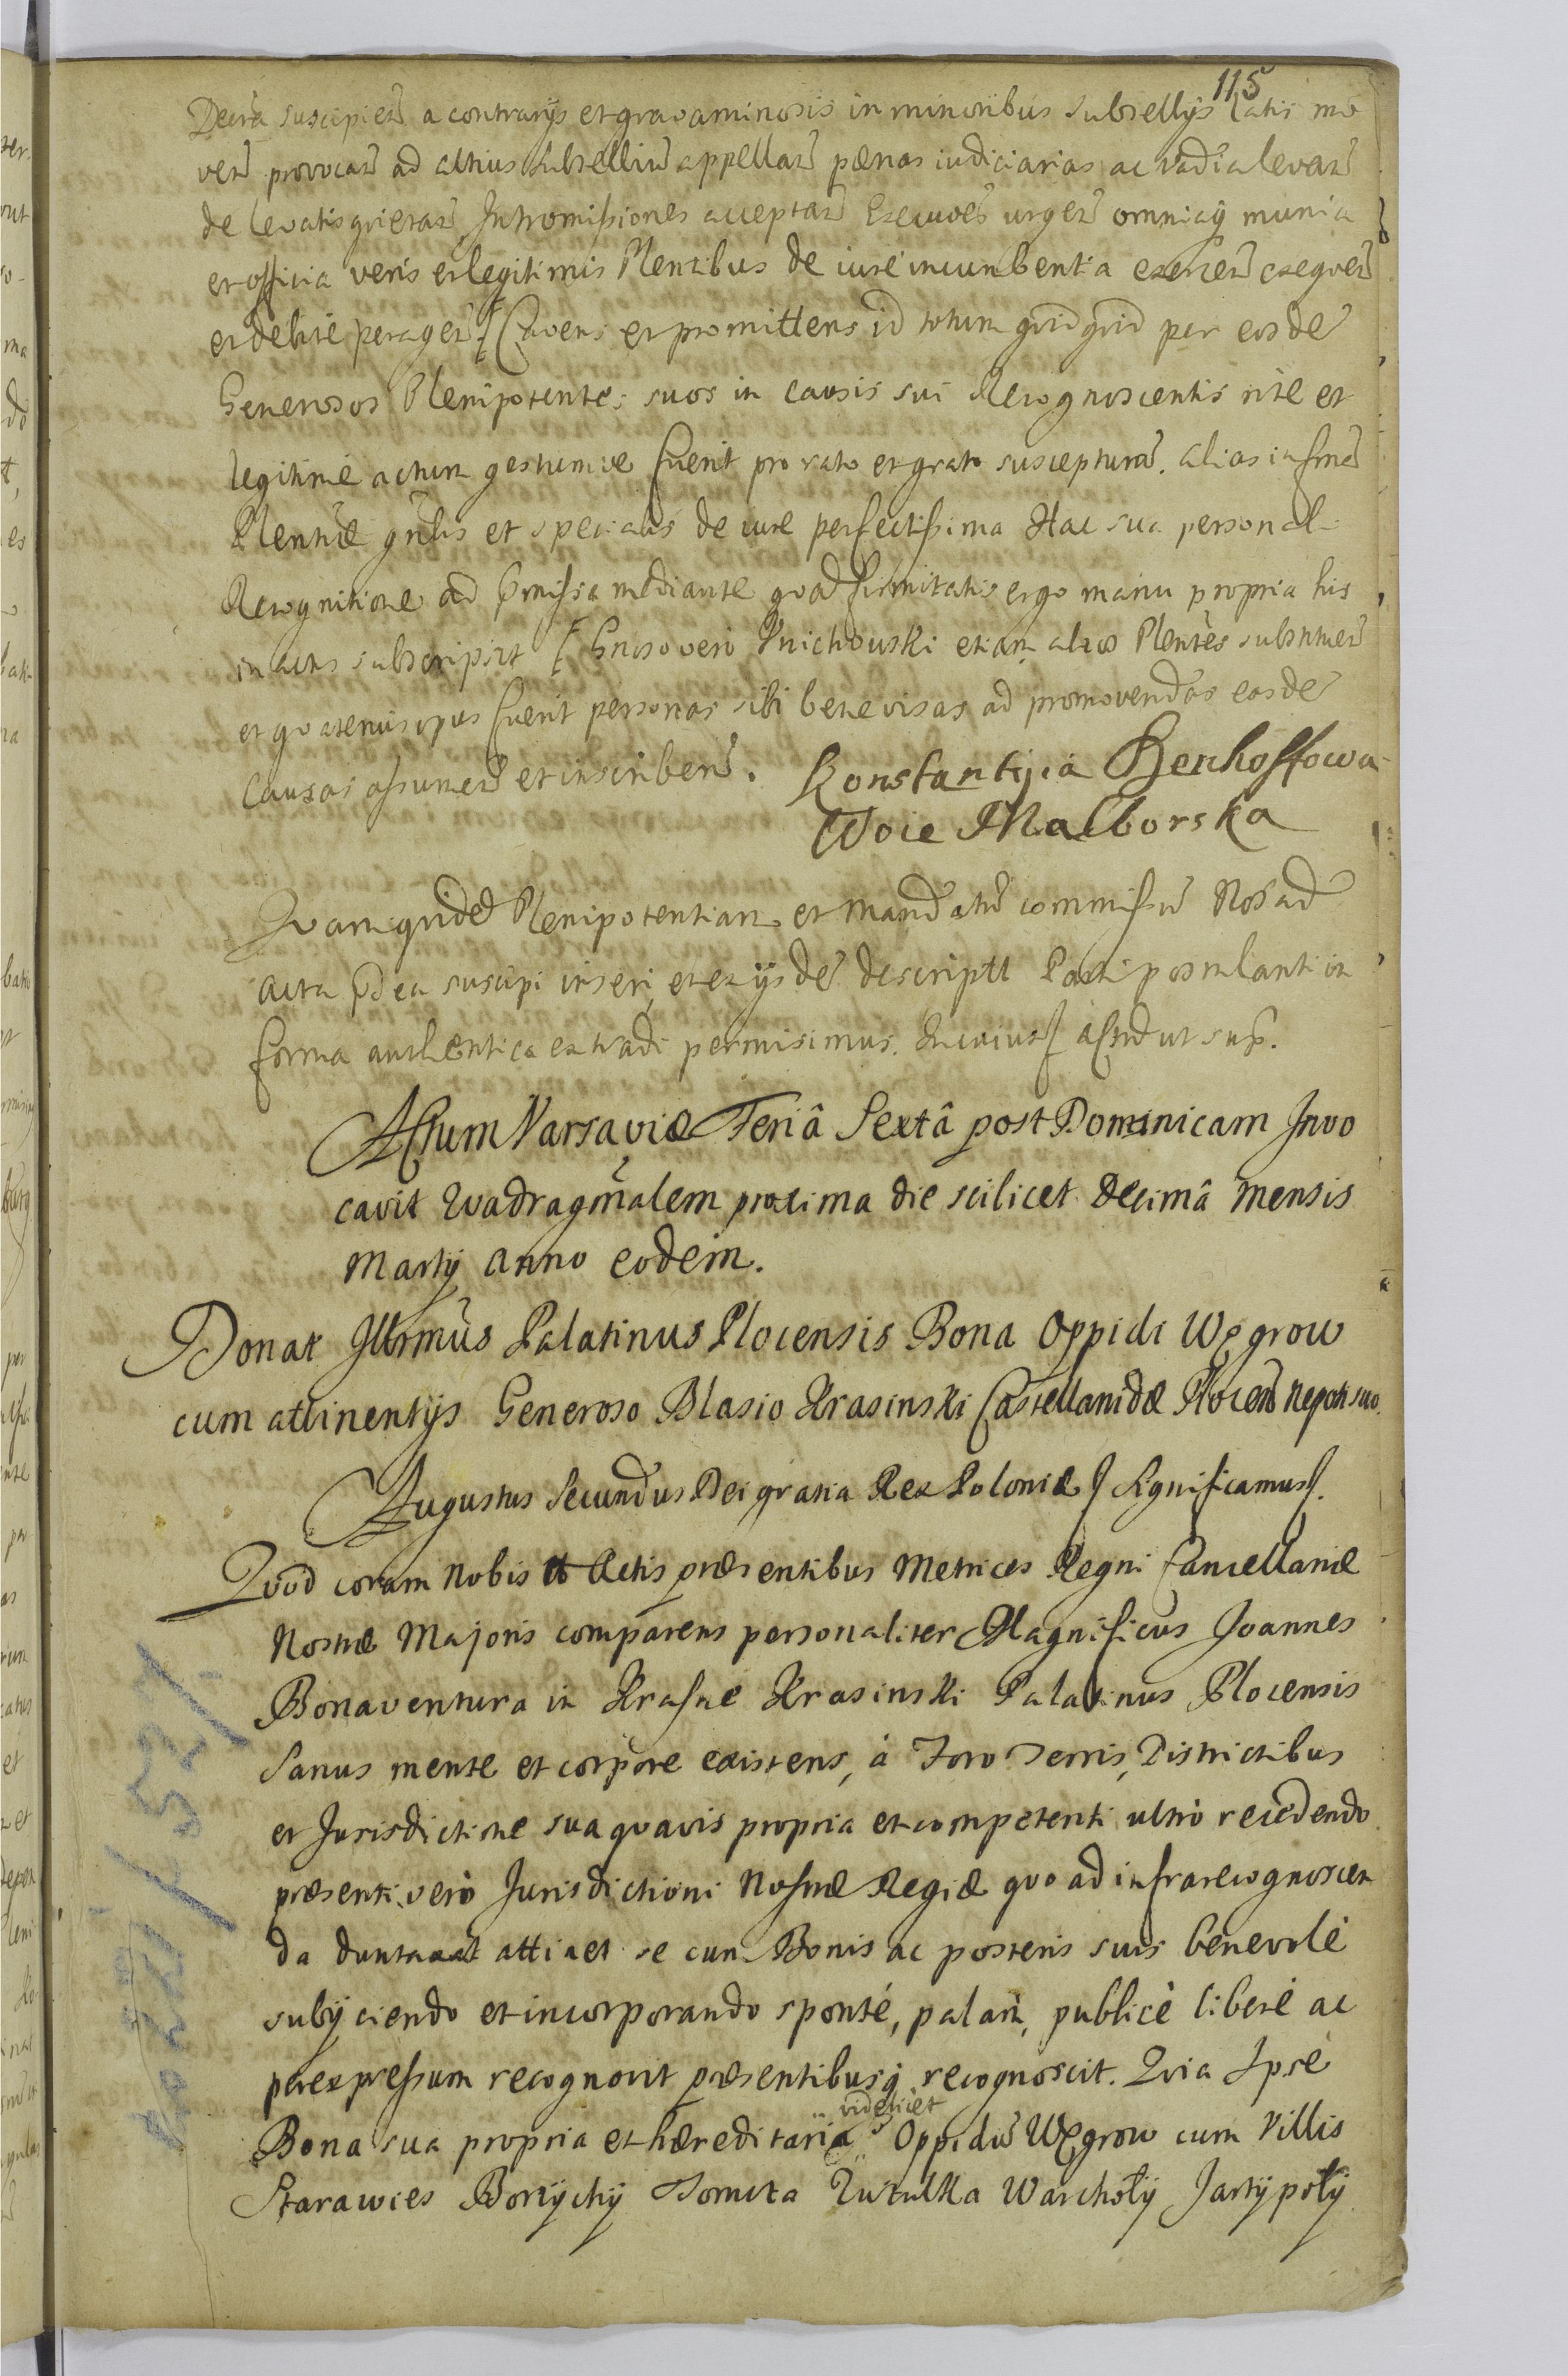 115
Decra suscipien a contrarijs et gravaminosis in minoribus subsellijs latis mo
ven provocan ad altius subselliũ appellan pænas iudiciarias ac vadia levan
de levatis quietan Intromissiones acceptan Execuoēs urgen omniaq munia
et officia veris et legitimis Plentibus de iure incumbentia exercen exequen
et debite peragen Cavens et promittens id totum quidquid per eosdē
Generosos Plenipotentes suos in causis sui Recognoscentis rite et
legitimè actum gestumve fuerit pro rato et grato suscepturã. alias in formã
Plentiæ gnlis et specialis de iure perfectissima Hac sua personal
Recognitione ad pmissa mediante quā firmitatis ergo manu propria his
in actis subscripsit Gnroso vero Knichowski etiam alios Plentes substituen
et quatenus opus fuerit personas sibi benevisas ad promovendas easdē
causas assumen et inscriben. Konstantijia Denhoffowa
Woie Malborska
Quamquidē Plenipotentiam et mandatũ commissũ Nos ad
acta pdca suscipi inseri et ex ijsdē descriptũ Parti postulanti in
forma authentica extradi permisimus. In cuius Actũ ut sup.
Actum Varsaviæ Feriâ Sextâ post Dominicam Invo
cavit Quadragmalem proxima die scilicet decimâ mensis
Martij anno eodem.
Donat Illrmus Palatinus Plocensis Bona Oppidi Węgrow
cum attinentijs Generoso Blasio Krasinski Castellanidæ Plocen Nepoti suo.
Augustus Secundus Dei gratia Rex Poloniæ Significamus.
Quod coram Nobis et Actis præsentibus Metrices Regni Cancellariæ
Nostræ Majoris comparens personaliter Magnificus Joannes
Bonaventura in Krasne Krasinski Palatinus Plocensis
Sanus mente et corpore existens, à Foro Terris, Districtibus
et Jurisdictione sua quavis propria et competenti ultrò recedendo
præsenti verò Jurisdictioni Nostræ Regiæ quo ad infrarecognoscen
da duntaxat attinet se cum Bonis ac posteris suis benevolè
subijciendo et incorporando sponté, palam, publicè liberè ac
per expressum recognovit præsentibusq recognoscit. Quia Ipse
videlicet
Bona sua propria et hæreditaria Oppidũ Węgrow cum Villis
Starawies Borzychy Jarnica Zuzułka Warchoły Jartypoły